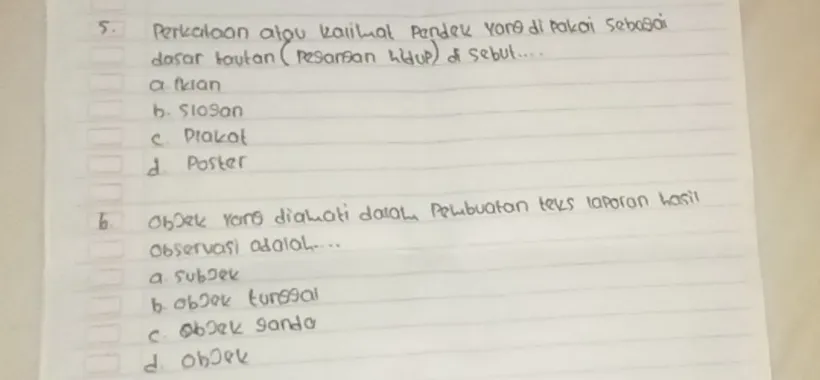 5. Perkataan atau kalimat Pendek yang di Pakai sebagai
dasar tautan (Pegangan hidup) di sebut....
a. iklan
b. slogan
c. Plakat
d. Poster
6. objek yang diamati dalam Pembuatan teks laporan hasil
observasi adalah....
a. subjek
b. objek tunggal
c. objek ganda
d. objek